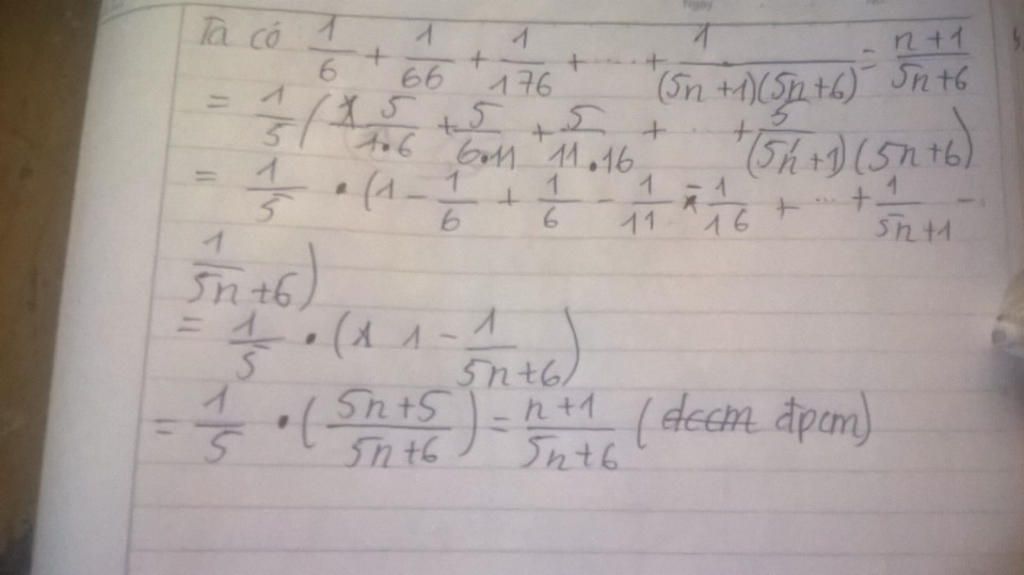 Ta có 1/6 + 1/66 + 1/176 + ... + 1/(5n+1)(5n+6) = n+1/5n+6
= 1/5 ( 5/1.6 + 5/6.11 + 5/11.16 + ... + 5/(5n+1)(5n+6) )
= 1/5 . (1 - 1/6 + 1/6 - 1/11 - 1/16 + ... + 1/5n+1 -
1/5n+6 )
= 1/5 . ( 1 - 1/5n+6 )
= 1/5 . ( 5n+5/5n+6 ) = n+1/5n+6 ( đccm đpcm)